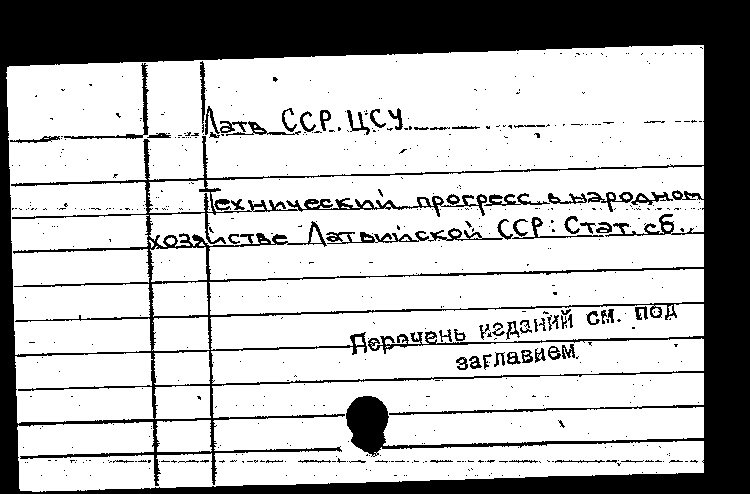 Латв ССР. ЦСУ.
Технический прогресс в народном
хозяйстве Латвийской ССР: Стат. сб..
Перечень изданий см. под
заглавием.